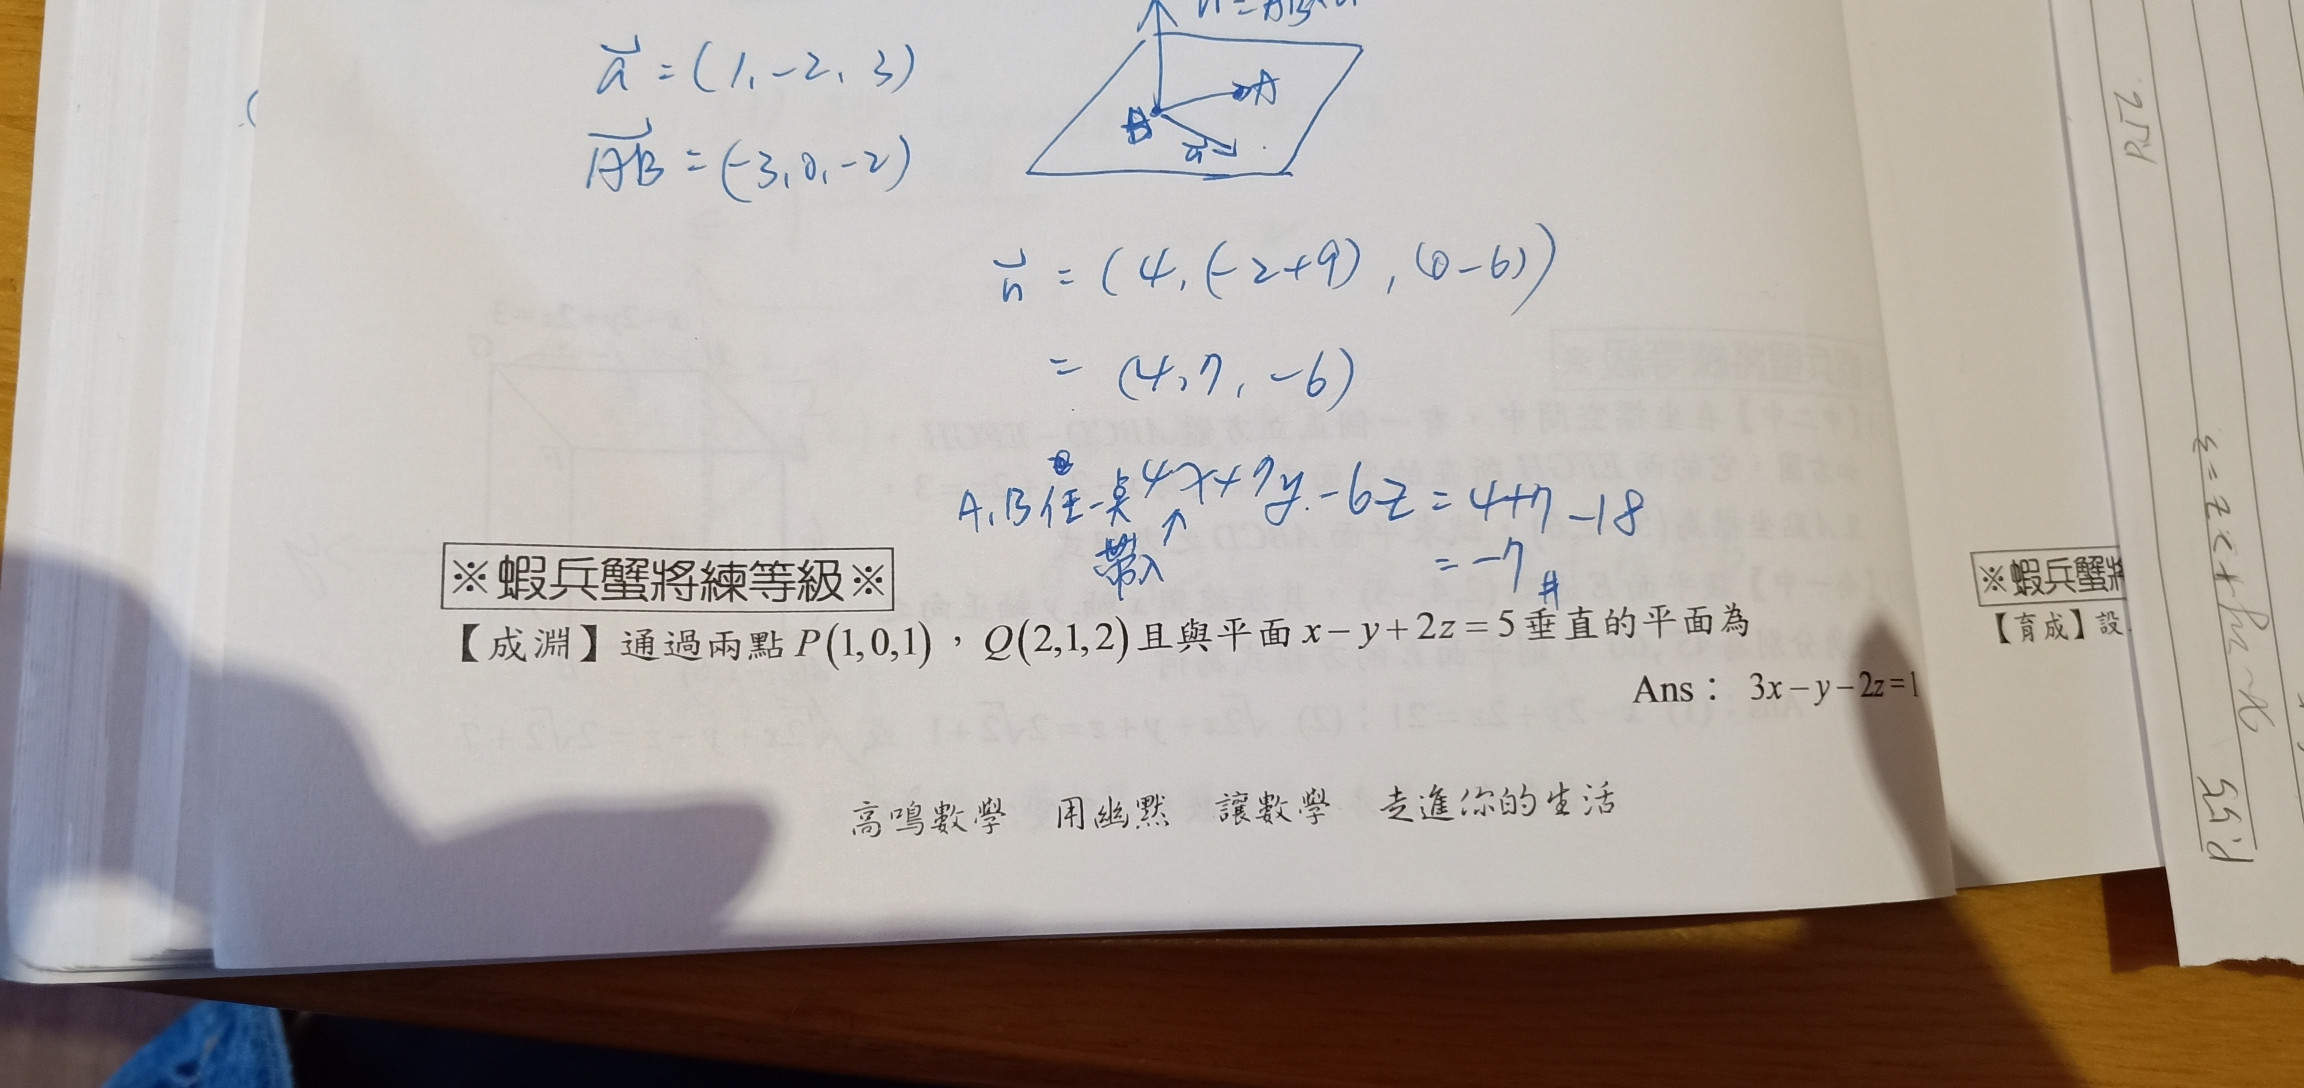 a = (1, -2, 3)
AB = (-3, 0, -2)
B
A
a
n = (4, (-2+9), (0-6))
= (4, 7, -6)
A, B 任一點 4x+7y-6z = 4+7-18
帶入
= -7 #
※蝦兵蟹將練等級※
【成淵】通過兩點 P(1,0,1),Q(2,1,2) 且與平面 x-y+2z=5 垂直的平面為
Ans: 3x-y-2z=1
高鳴數學 用幽默 讓數學 走進你的生活
※蝦兵蟹將
【育成】設
P.52
P.55